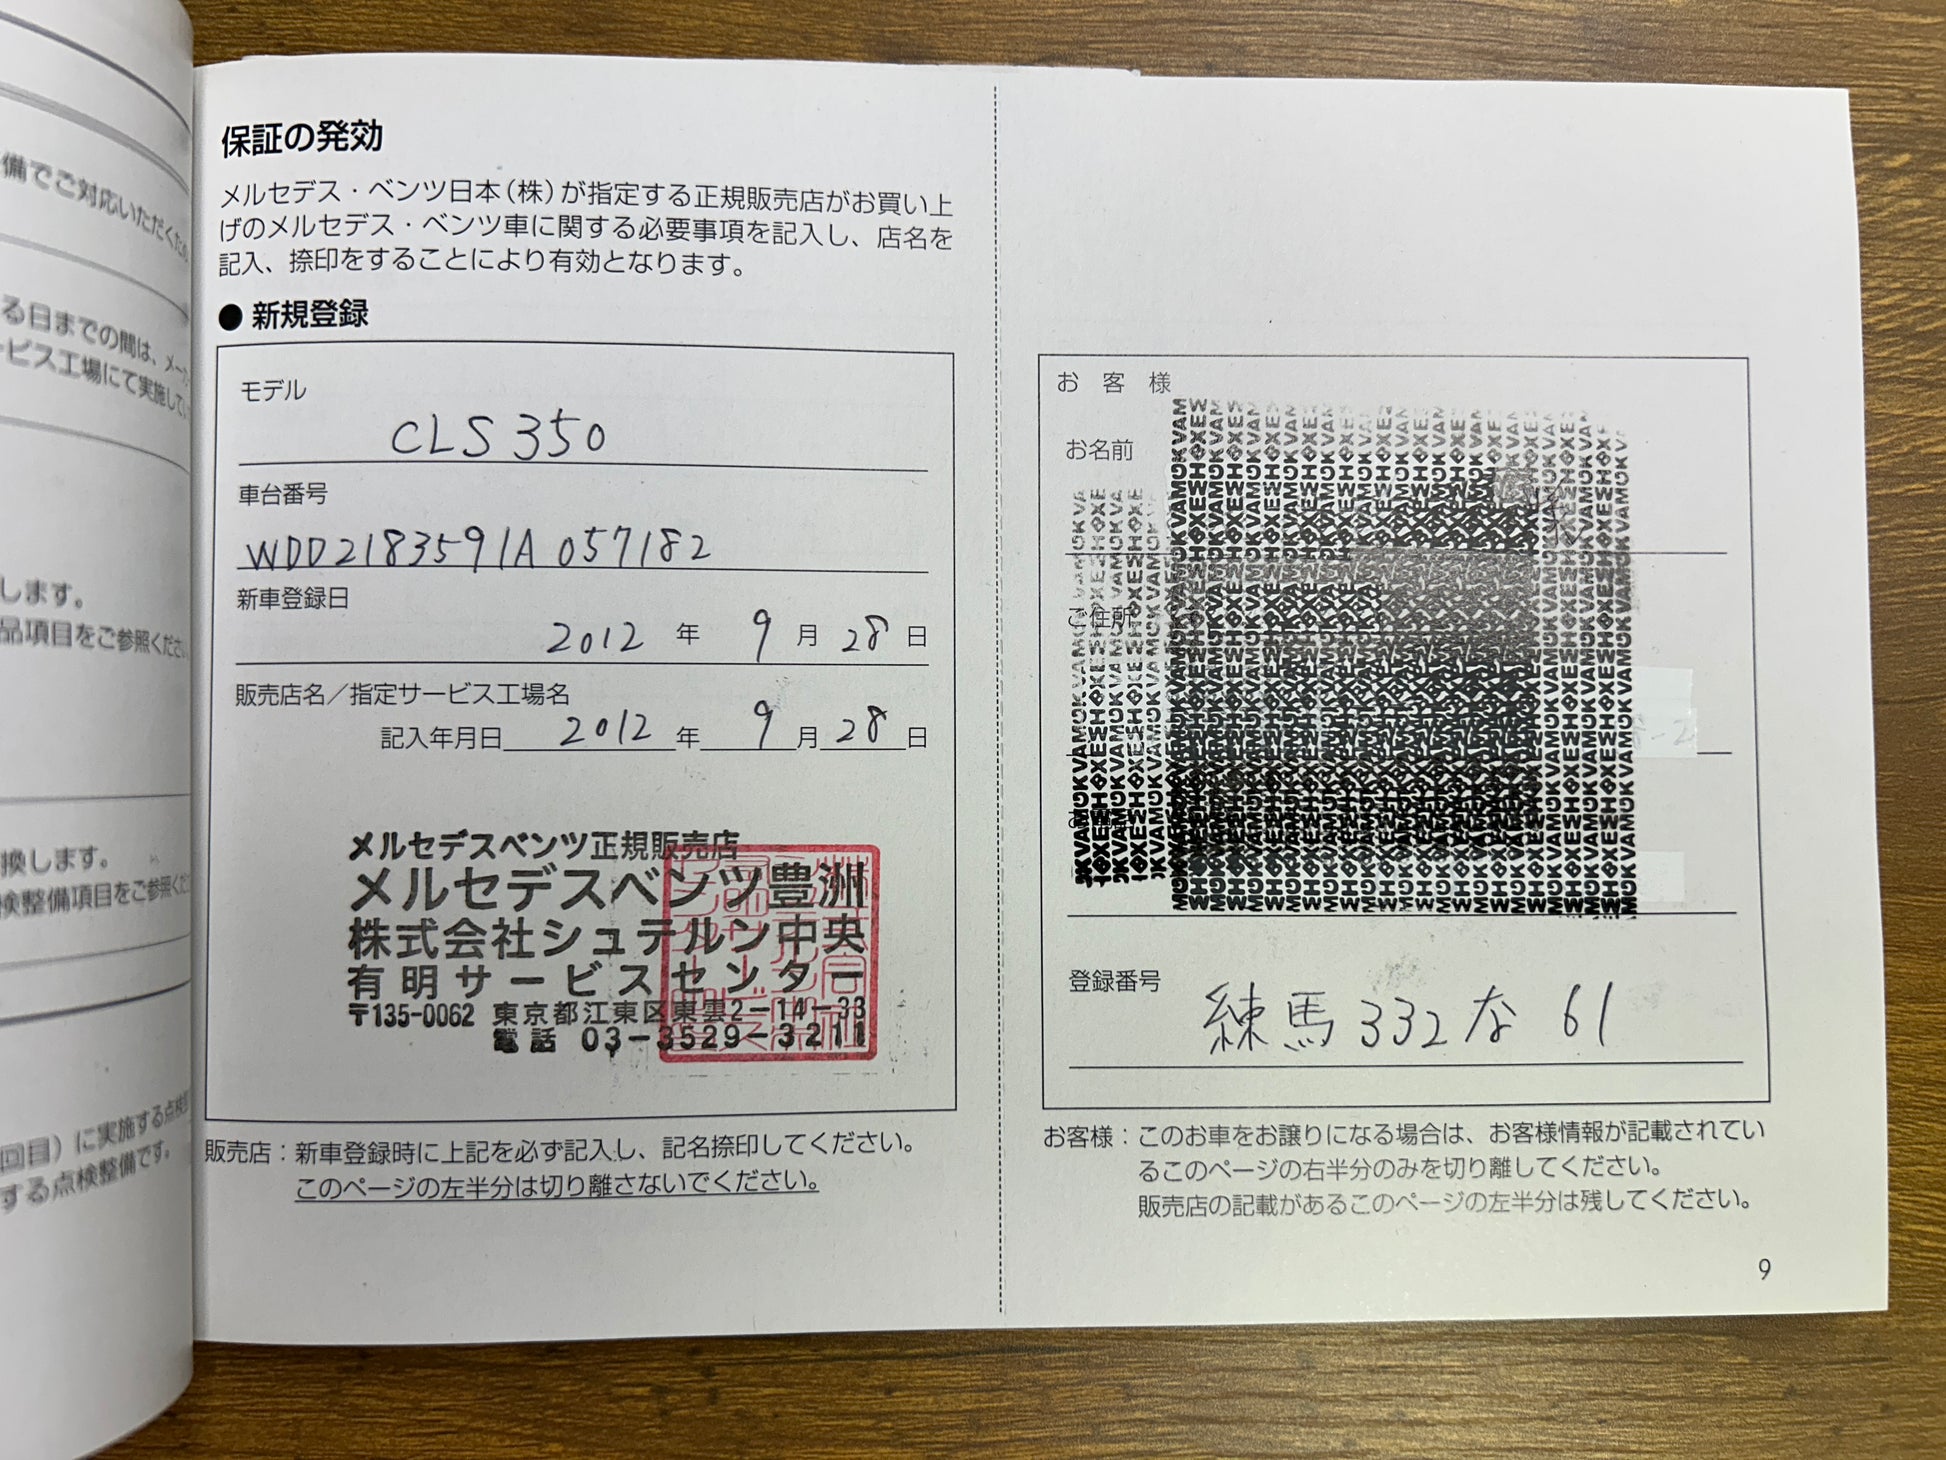 備でご対応いただくため、
る日までの間は、メー
ービス工場にて実施してい
します。
品項目をご参照ください
換します。
検整備項目をご参照くだ
回目）に実施する点検
する点検整備です。
保証の発効
メルセデス・ベンツ日本（株）が指定する正規販売店がお買い上
げのメルセデス・ベンツ車に関する必要事項を記入し、店名を
記入、捺印をすることにより有効となります。
● 新規登録
モデル
CLS 350
車台番号
WDD2183591A057182
新車登録日
2012 年 9 月 28 日
販売店名／指定サービス工場名
記入年月日 2012 年 9 月 28 日
メルセデスベンツ正規販売店
メルセデスベンツ豊洲
株式会社シュテルン中央
有明サービスセンター
〒135-0062 東京都江東区東雲2-14-33
電話 03-3529-3211
販売店：新車登録時に上記を必ず記入し、記名捺印してください。
このページの左半分は切り離さないでください。
お客様
お名前
ご住所
登録番号
練馬 332 な 61
お客様：このお車をお譲りになる場合は、お客様情報が記載されてい
るこのページの右半分のみを切り離してください。
販売店の記載があるこのページの左半分は残してください。
9